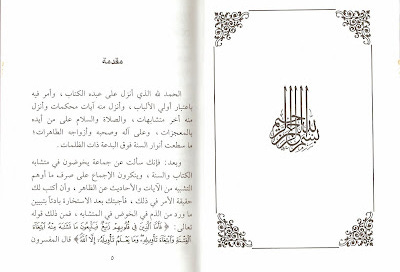 بسم الله الرحمن الرحيم
مقدمة
الحمد لله الذي أنزل على عبده الكتاب ، وأمر فيه
باعتبار أولي الألباب ، وأنزل منه آيات محكمات وأنزل
منه أخر متشابهات ، والصلاة والسلام على من أيده
بالمعجزات ، وعلى آله وصحبه وأزواجه الطاهرات؛
ما سطعت أنوار السنة فوق البدعة ذات الظلمات .
وبعد: فإنك سألت عن جماعة يخوضون في متشابه
الكتاب والسنة ، وينكرون الإجماع على صرف ما أوهم
التشبيه من الآيات والأحاديث عن الظاهر ، وأن أكتب لك
حقيقة الأمر في ذلك ، فأجبتك بعد الاستخارة بادئاً بتبيين
ما ورد من الذم في الخوض في المتشابه ، فمن ذلك قوله
تعالى: ﴿ فَأَمَّا الَّذِينَ فِي قُلُوبِهِمْ زَيْغٌ فَيَتَّبِعُونَ مَا تَشَابَهَ مِنْهُ ابْتِغَاءَ
الْفِتْنَةِ وَابْتِغَاءَ تَأْوِيلِهِ وَمَا يَعْلَمُ تَأْوِيلَهُ إِلَّا اللَّهُ ﴾ قال المفسرون
٥